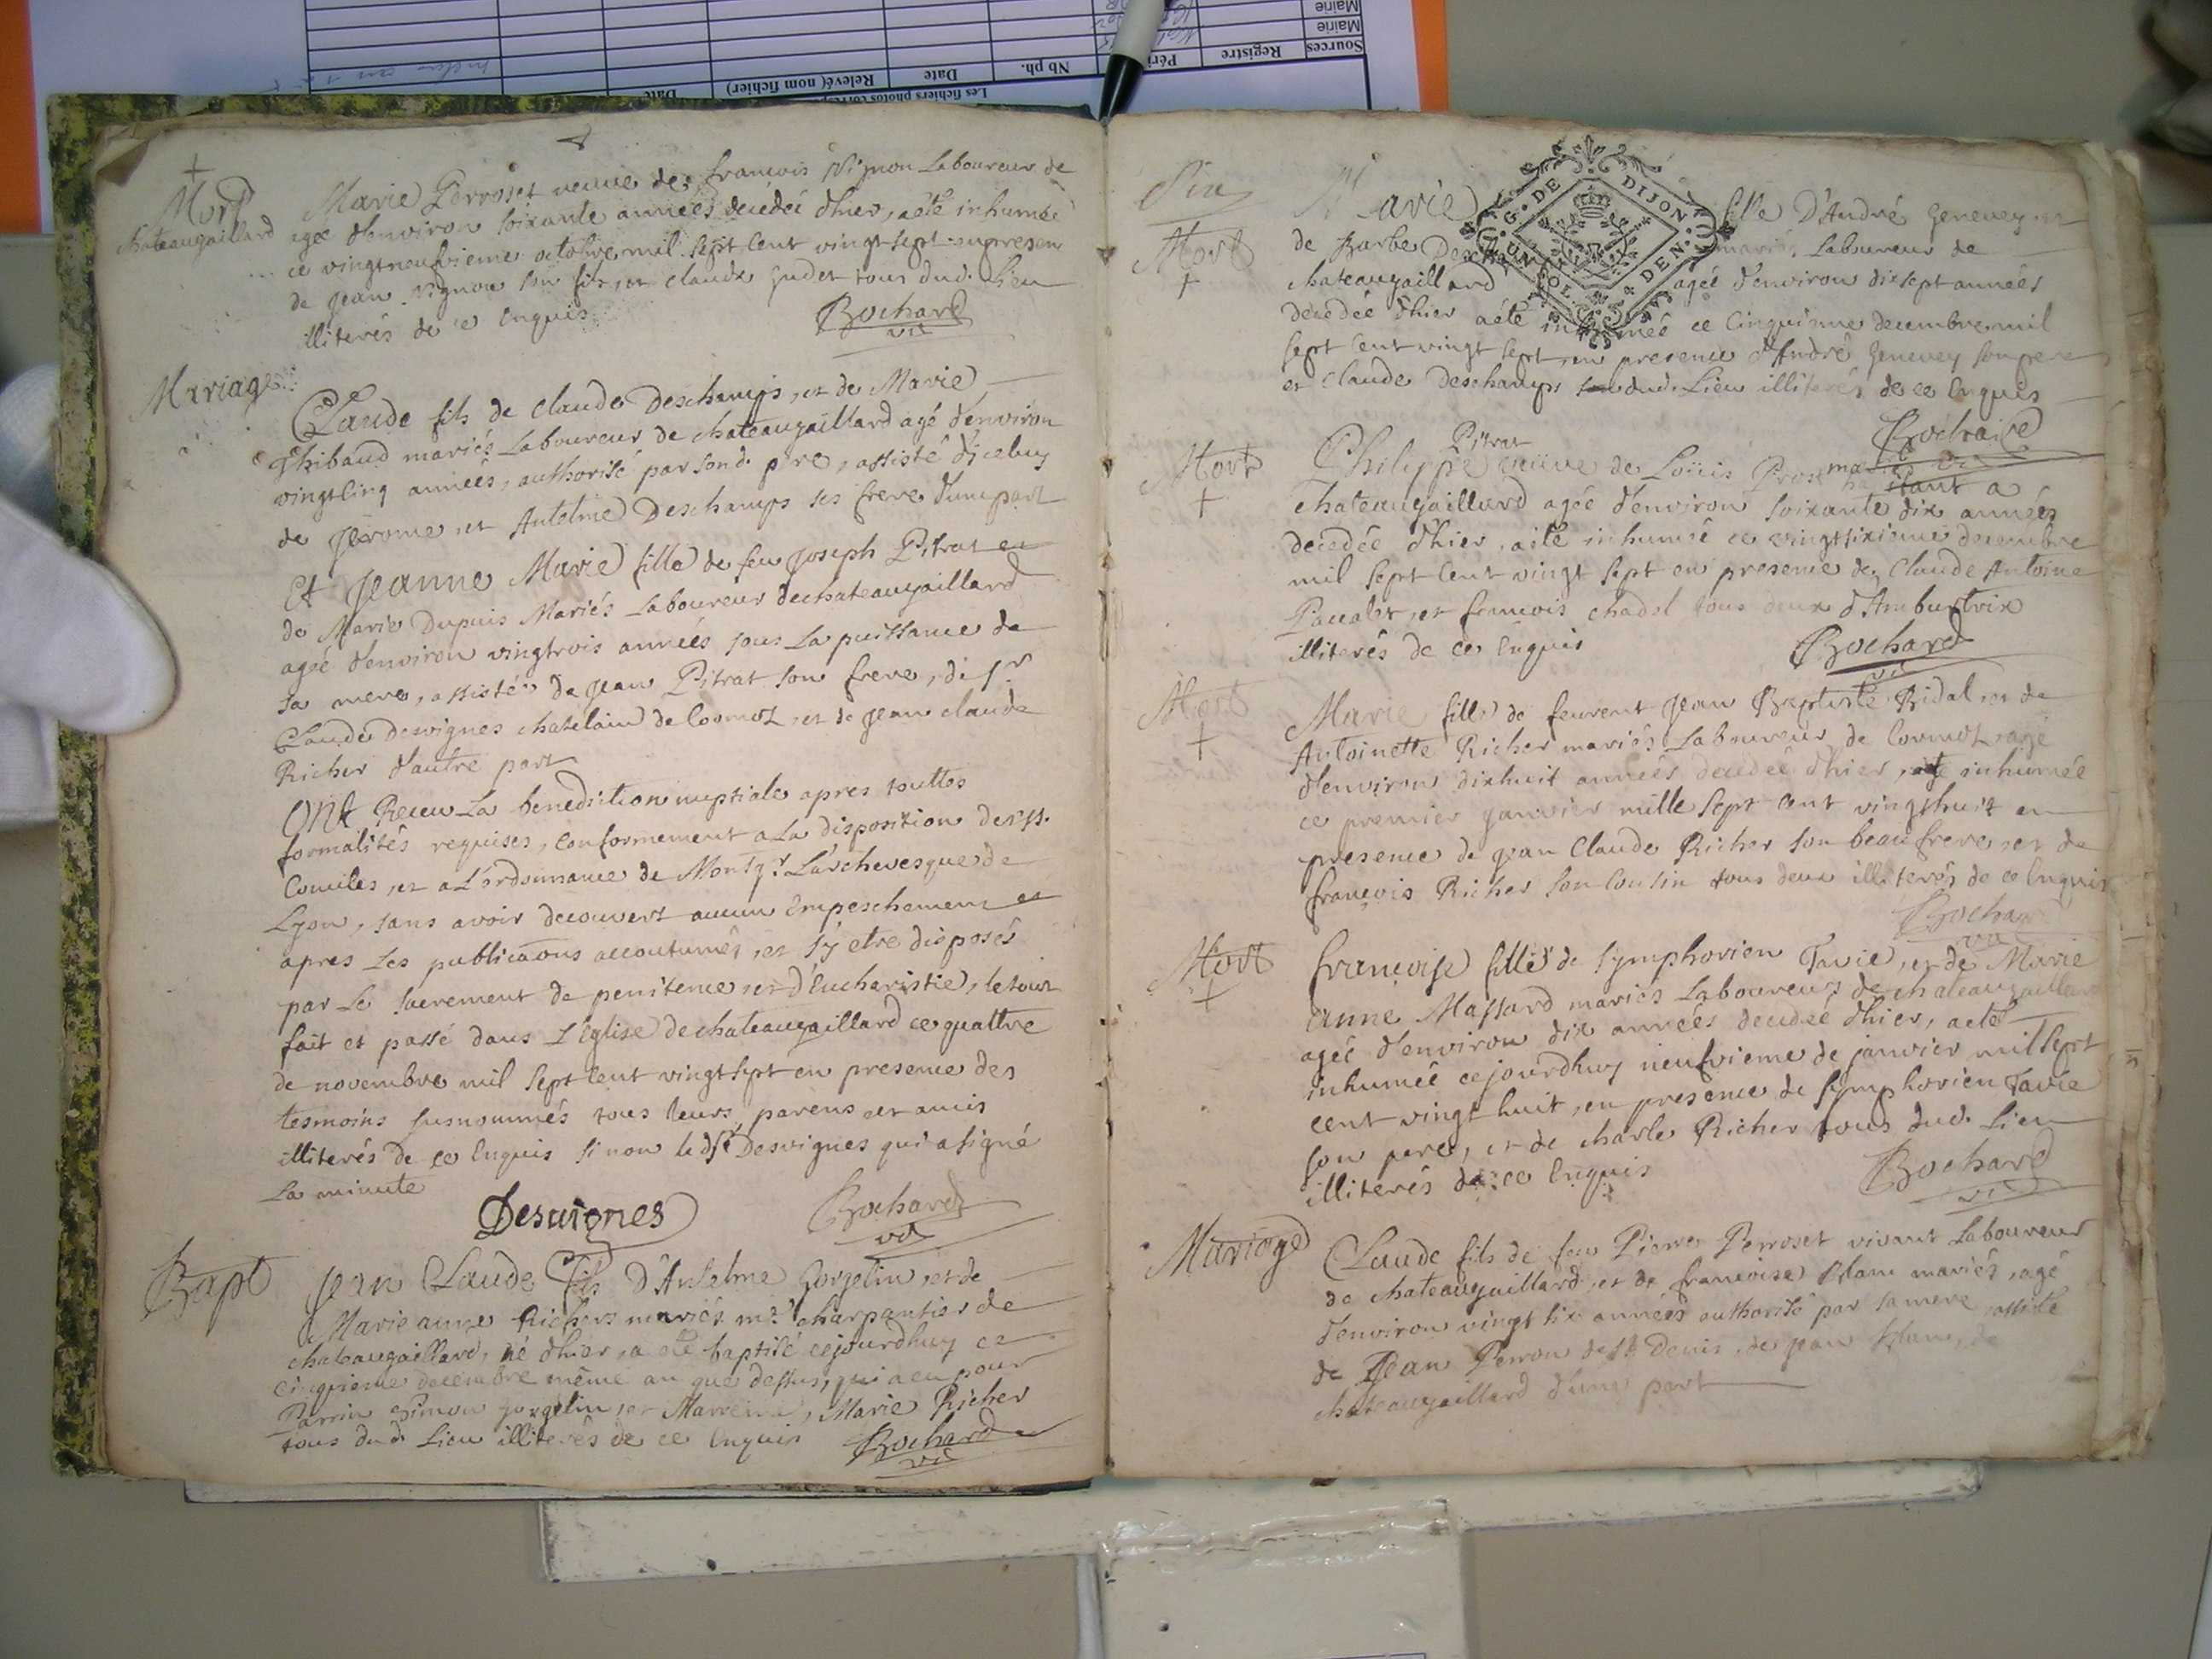 Sources
Registre
Péri
Nb ph.
Date
Relevé( nom fichier)
Date
Mairie
Mairie
Les fichiers photos
Mort
chateaugaillard
Marie Perroset veuve de françois Vignon Laboureur de
agée d'environ soixante années decedée d'hier, a eté inhumée
ce vingtneufvieme octobre mil sept cent vingt sept en presen
de Jean Vignon son fils, et claude Gudet tous dud. Lieu
illiterés de ce Enquis
Bochard
vic
Mariage
Claude fils de claude Deschamps, et de Marie
Thibaud mariés Laboureur de chateaugaillard agé d'environ
vingtcinq années, authorisé par sond. pere, assisté d'jceluy
de Jerome, et Antelme Deschamps ses frere d'une part
Et Jeanne Marie fille de feu Joseph Pitrat et
de Marie Dupuis Mariés Laboureur de chateaugaillard
agée d'environ vingtrois années sous La puissance de
sa mere, assistée de Jean Pitrat son frere, de Sr.
Claude Desvignes chatelain de Cormoz, et de Jean claude
Richer d'autre part
Ont Receu La benediction nuptiale apres touttes
formalités requises, conformement a La disposition des SS.
Conciles, et a L'ordonnance de Monsgr. L'archevesque de
Lyon, sans avoir decouvert aucun Empeschement et
apres Les publicaõns accoutumés, et s'y etre disposés
par Le sacrement de penitence, et d'Eucharistie, le tout
fait et passé dans L'Eglise de chateaugaillard ce quattre
de novembre mil sept cent vingtsept en presence des
tesmoins susnommés tous leurs parens et amis
illiterés de ce Enquis sinon led Sr Desvignes qui a signé
La minute
Desuignes
Bochard
vic
Bapt
Jean Claude fils D'Anselme Gorgelin, et de
Marie anne Richers mariés me. charpantier de
chateaugaillard, né d'hier, a eté baptisé cejourdhuy ce
cinquieme decembre même an que dessus, qui a eu pour
Parrin Simon Gorgelin, et Marreine, Marie Richer
tous dud. Lieu illiterés de ce Enquis
Bochard
vic
Six
G. DE DIJON
DEN.
Mort
Marie fille D'André Genevey et
de Barbe mariés, Laboureur de
chateaugaillard agée d'environ dixsept années
decedée d'hier a eté inhumée ce cinquieme decembre mil
sept cent vingt sept, en presence d'André Genevey son pere
et Claude Deschamps dud. Lieu illiterés de ce Enquis
Mort
Pitrat
Philippe veuve de Loüis a
chateaugaillard agée d'environ soixante dix années
decedée d'hier, a eté inhumée ce vingtsixieme decembre
mil sept cent vingt sept en presence de Claude Antoine
Pacalet, et francois chadel tous deux d'Ambutrix
illiterés de ce Enquis
Bochard
vic
Mort
Marie fille de Jean Baptiste Ridal, et de
Antoinette Richer mariés Laboureur de Cormoz, agé
d'environ dixhuit années decedée d'hier, a eté inhumée
ce premier janvier mille sept cent vingthuit en
presence de Jean Claude Richer son beaufrere, et de
françois Richer son cousin tous deux illiterés de ce Enquis
Bochard
vic
Mort
françoise fille de Symphorien Tavie, et de Marie
anne Massard mariés Laboureurs de chateaugaillard
agée d'environ dix années decedée d'hier, a eté
inhumée cejourdhuy neufvieme de janvier mil sept
cent vingt huit, en presence de Symphorien Tavie
son pere, et de charle Richer tous dud. Lieu
illiterés de ce Enquis
Bochard
vic
Mariage
Claude fils de feu Pierre Perroset vivant Laboureur
de chateaugaillard, et de francoise Blanc mariés, agé
d'environ vingt six années authorisé par sa mere, assisté
de Jean Perron de St. Denis, de Jean Blanc, de
chateaugaillard d'une part